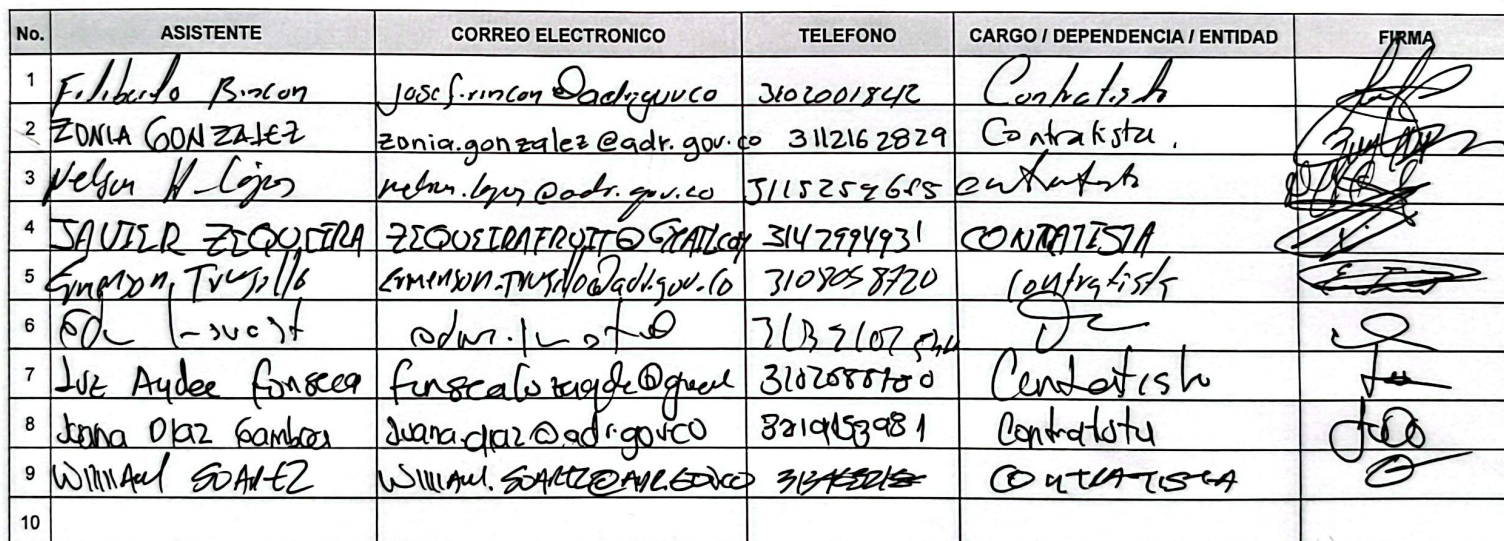 No. ASISTENTE CORREO ELECTRONICO TELEFONO CARGO / DEPENDENCIA / ENTIDAD FIRMA
1 Filiberto Rincon josef.rincon@adr.gov.co 3102001842 Contratista
2 ZONIA GONZALEZ zonia.gonzalez@adr.gov.co 3112162829 Contratista.
3 Nelson H. López nelson.lopez@adr.gov.co 3115259685 contratista
4 JAVIER ZEQUEIRA ZEQUEIRAFRUIT@GMAIL.COM 3142994931 CONTRATISTA
5 Emerson Trujillo Emerson.Trujillo@adr.gov.co 3108058720 Contratista
6
7 Luz Aydee Fonseca Contratista
8 Diaz Gamboa 3219153981 Contratista
9 William SUAREZ WILLIAM.SUAREZ@ADR.GOV.CO CONTRATISTA
10